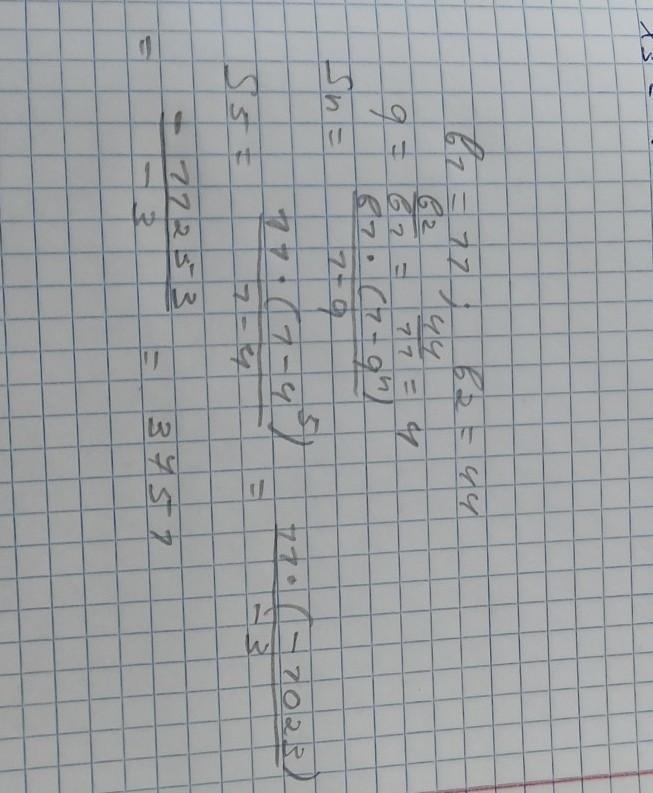 b1 = 11; b2 = 44
q = b2/b1 = 44/11 = 4
Sn = b1·(1-q^n)/(1-q)
S5 = 11·(1-4^5)/(1-4) = 11·(-1023)/(-3) =
= -11253/-3 = 3451